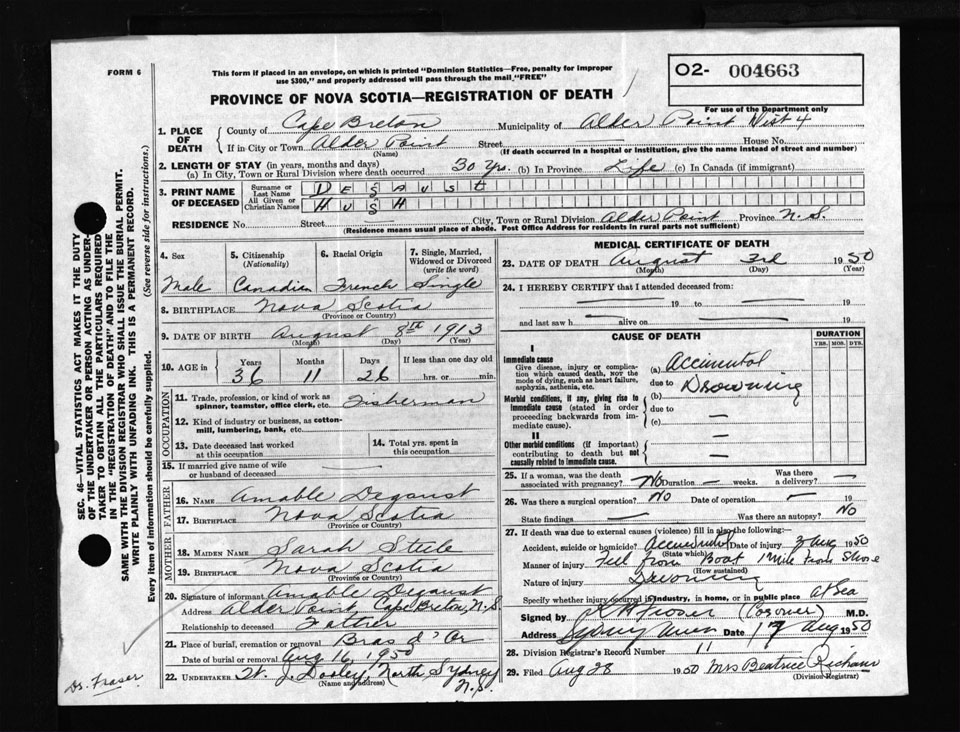 FORM 6
This form if placed in an envelope, on which is printed "Dominion Statistics—Free, penalty for improper
use $300," and properly addressed will pass through the mail "FREE"
O2- 004663
For use of the Department only
PROVINCE OF NOVA SCOTIA—REGISTRATION OF DEATH
1. PLACE OF DEATH
County of Cape Breton Municipality of Alder Point Dist 4
If in City or Town Alder Point Street House No.
(Name) (If death occurred in a hospital or institution, give the name instead of street and number)
2. LENGTH OF STAY (in years, months and days)
(a) In City, Town or Rural Division where death occurred 30 Yrs. (b) In Province Life (c) In Canada (if immigrant)
3. PRINT NAME OF DECEASED
Surname or Last Name DEGAUST
All Given or Christian Names HUGH
RESIDENCE No. Street City, Town or Rural Division Alder Point Province N.S.
(Residence means usual place of abode. Post Office Address for residents in rural parts not sufficient)
4. Sex Male
5. Citizenship (Nationality) Canadian
6. Racial Origin French
7. Single, Married, Widowed or Divorced (write the word) Single
8. BIRTHPLACE Nova Scotia
(Province or Country)
9. DATE OF BIRTH August 8th 1913
(Month) (Day) (Year)
10. AGE in Years Months Days If less than one day old
36 11 26 hrs. or min.
OCCUPATION
11. Trade, profession, or kind of work as
spinner, teamster, office clerk, etc. Fisherman
12. Kind of industry or business, as cotton-
mill, lumbering, bank, etc.
13. Date deceased last worked
at this occupation
14. Total yrs. spent in
this occupation
15. If married give name of wife
or husband of deceased
FATHER
16. NAME Amable Degaust
17. BIRTHPLACE Nova Scotia
(Province or Country)
MOTHER
18. MAIDEN NAME Sarah Steele
19. BIRTHPLACE Nova Scotia
(Province or Country)
20. Signature of informant Amable Degaust
Address Alder Point, Cape Breton, N.S.
Relationship to deceased Father
21. Place of burial, cremation or removal Bras d'Or
Date of burial or removal Aug 16, 1950
22. UNDERTAKER W. J. Dooley, North Sydney
N.S.
MEDICAL CERTIFICATE OF DEATH
23. DATE OF DEATH August 3rd 1950
(Month) (Day) (Year)
24. I HEREBY CERTIFY that I attended deceased from:
19 to 19
and last saw h alive on 19
CAUSE OF DEATH
DURATION
YRS. MOS. DYS.
I
Immediate cause
Give disease, injury or complica-
tion which caused death, NOT the
mode of dying, such as heart failure,
asphyxia, asthenia, etc.
(a) Accidental
due to Drowning
Morbid conditions, if any, giving rise to
immediate cause (stated in order
proceeding backwards from im-
mediate cause).
(b)
due to —
(c)
II
Other morbid conditions (if important)
contributing to death but not
causally related to immediate cause.
25. If a woman, was the death
associated with pregnancy? No Duration — weeks. Was there a delivery? —
26. Was there a surgical operation? No Date of operation — 19
State findings — Was there an autopsy? No
27. If death was due to external causes (violence) fill in also the following:—
Accident, suicide or homicide? Accidental Date of injury 3 Aug 1950
(State which)
Manner of injury Fell from Boat 1 Mile from Shore
(How sustained)
Nature of injury Drowning
Specify whether injury occurred in industry, in home, or in public place at Sea
Signed by (Coroner) M.D.
Address Sydney Mines Date 17 Aug 1950
28. Division Registrar's Record Number 11
29. Filed Aug 28 1950 Mrs Beatrice
(Division Registrar)
SEC. 46—VITAL STATISTICS ACT MAKES IT THE DUTY
OF THE UNDERTAKER OR PERSON ACTING AS UNDER-
TAKER TO OBTAIN ALL THE PARTICULARS REQUIRED
IN THE "REGISTRATION OF DEATH" AND TO FILE THE
SAME WITH THE DIVISION REGISTRAR WHO SHALL ISSUE THE BURIAL PERMIT.
WRITE PLAINLY WITH UNFADING INK. THIS IS A PERMANENT RECORD.
Every item of information should be carefully supplied. (See reverse side for instructions.)
Dr. Fraser